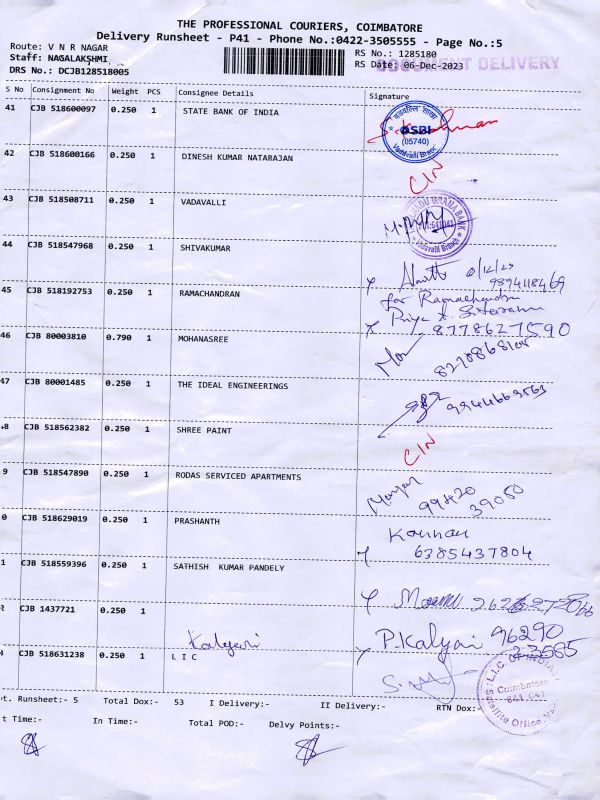 THE PROFESSIONAL COURIERS, COIMBATORE
Delivery Runsheet - P41 - Phone No.:0422-3505555 - Page No.:5
Route: V N R NAGAR
RS No.: 1285180
Staff: NAGALAKSHMI,
RS Date: 06-Dec-2023
DOCUMENT DELIVERY
DRS No.: DCJB128518005
S No Consignment No Weight PCS Consignee Details Signature
41 CJB 518600097 0.250 1 STATE BANK OF INDIA
SBI
(05740)
42 CJB 518600166 0.250 1 DINESH KUMAR NATARAJAN CIN
43 CJB 518508711 0.250 1 VADAVALLI
Vadavalli Branch
44 CJB 518547968 0.250 1 SHIVAKUMAR
9894118469
45 CJB 518192753 0.250 1 RAMACHANDRAN
for Ramachandra
8778627590
46 CJB 80003810 0.790 1 MOHANASREE
8270868105
47 CJB 80001485 0.250 1 THE IDEAL ENGINEERINGS
9944669563
48 CJB 518562382 0.250 1 SHREE PAINT CIN
9 CJB 518547890 0.250 1 RODAS SERVICED APARTMENTS
99420
39050
0 CJB 518629019 0.250 1 PRASHANTH Kannan
6385437804
1 CJB 518559396 0.250 1 SATHISH KUMAR PANDELY
2 CJB 1437721 0.250 1
Kalyani P.Kalyani 96290
23585
CJB 518631238 0.250 1 L I C
L.I.C. OF INDIA
Coimbatore
641 041
Satellite Office,
t. Runsheet:- 5 Total Dox:- 53 I Delivery:- II Delivery:- RTN Dox:-
t Time:- In Time:- Total POD:- Delvy Points:-